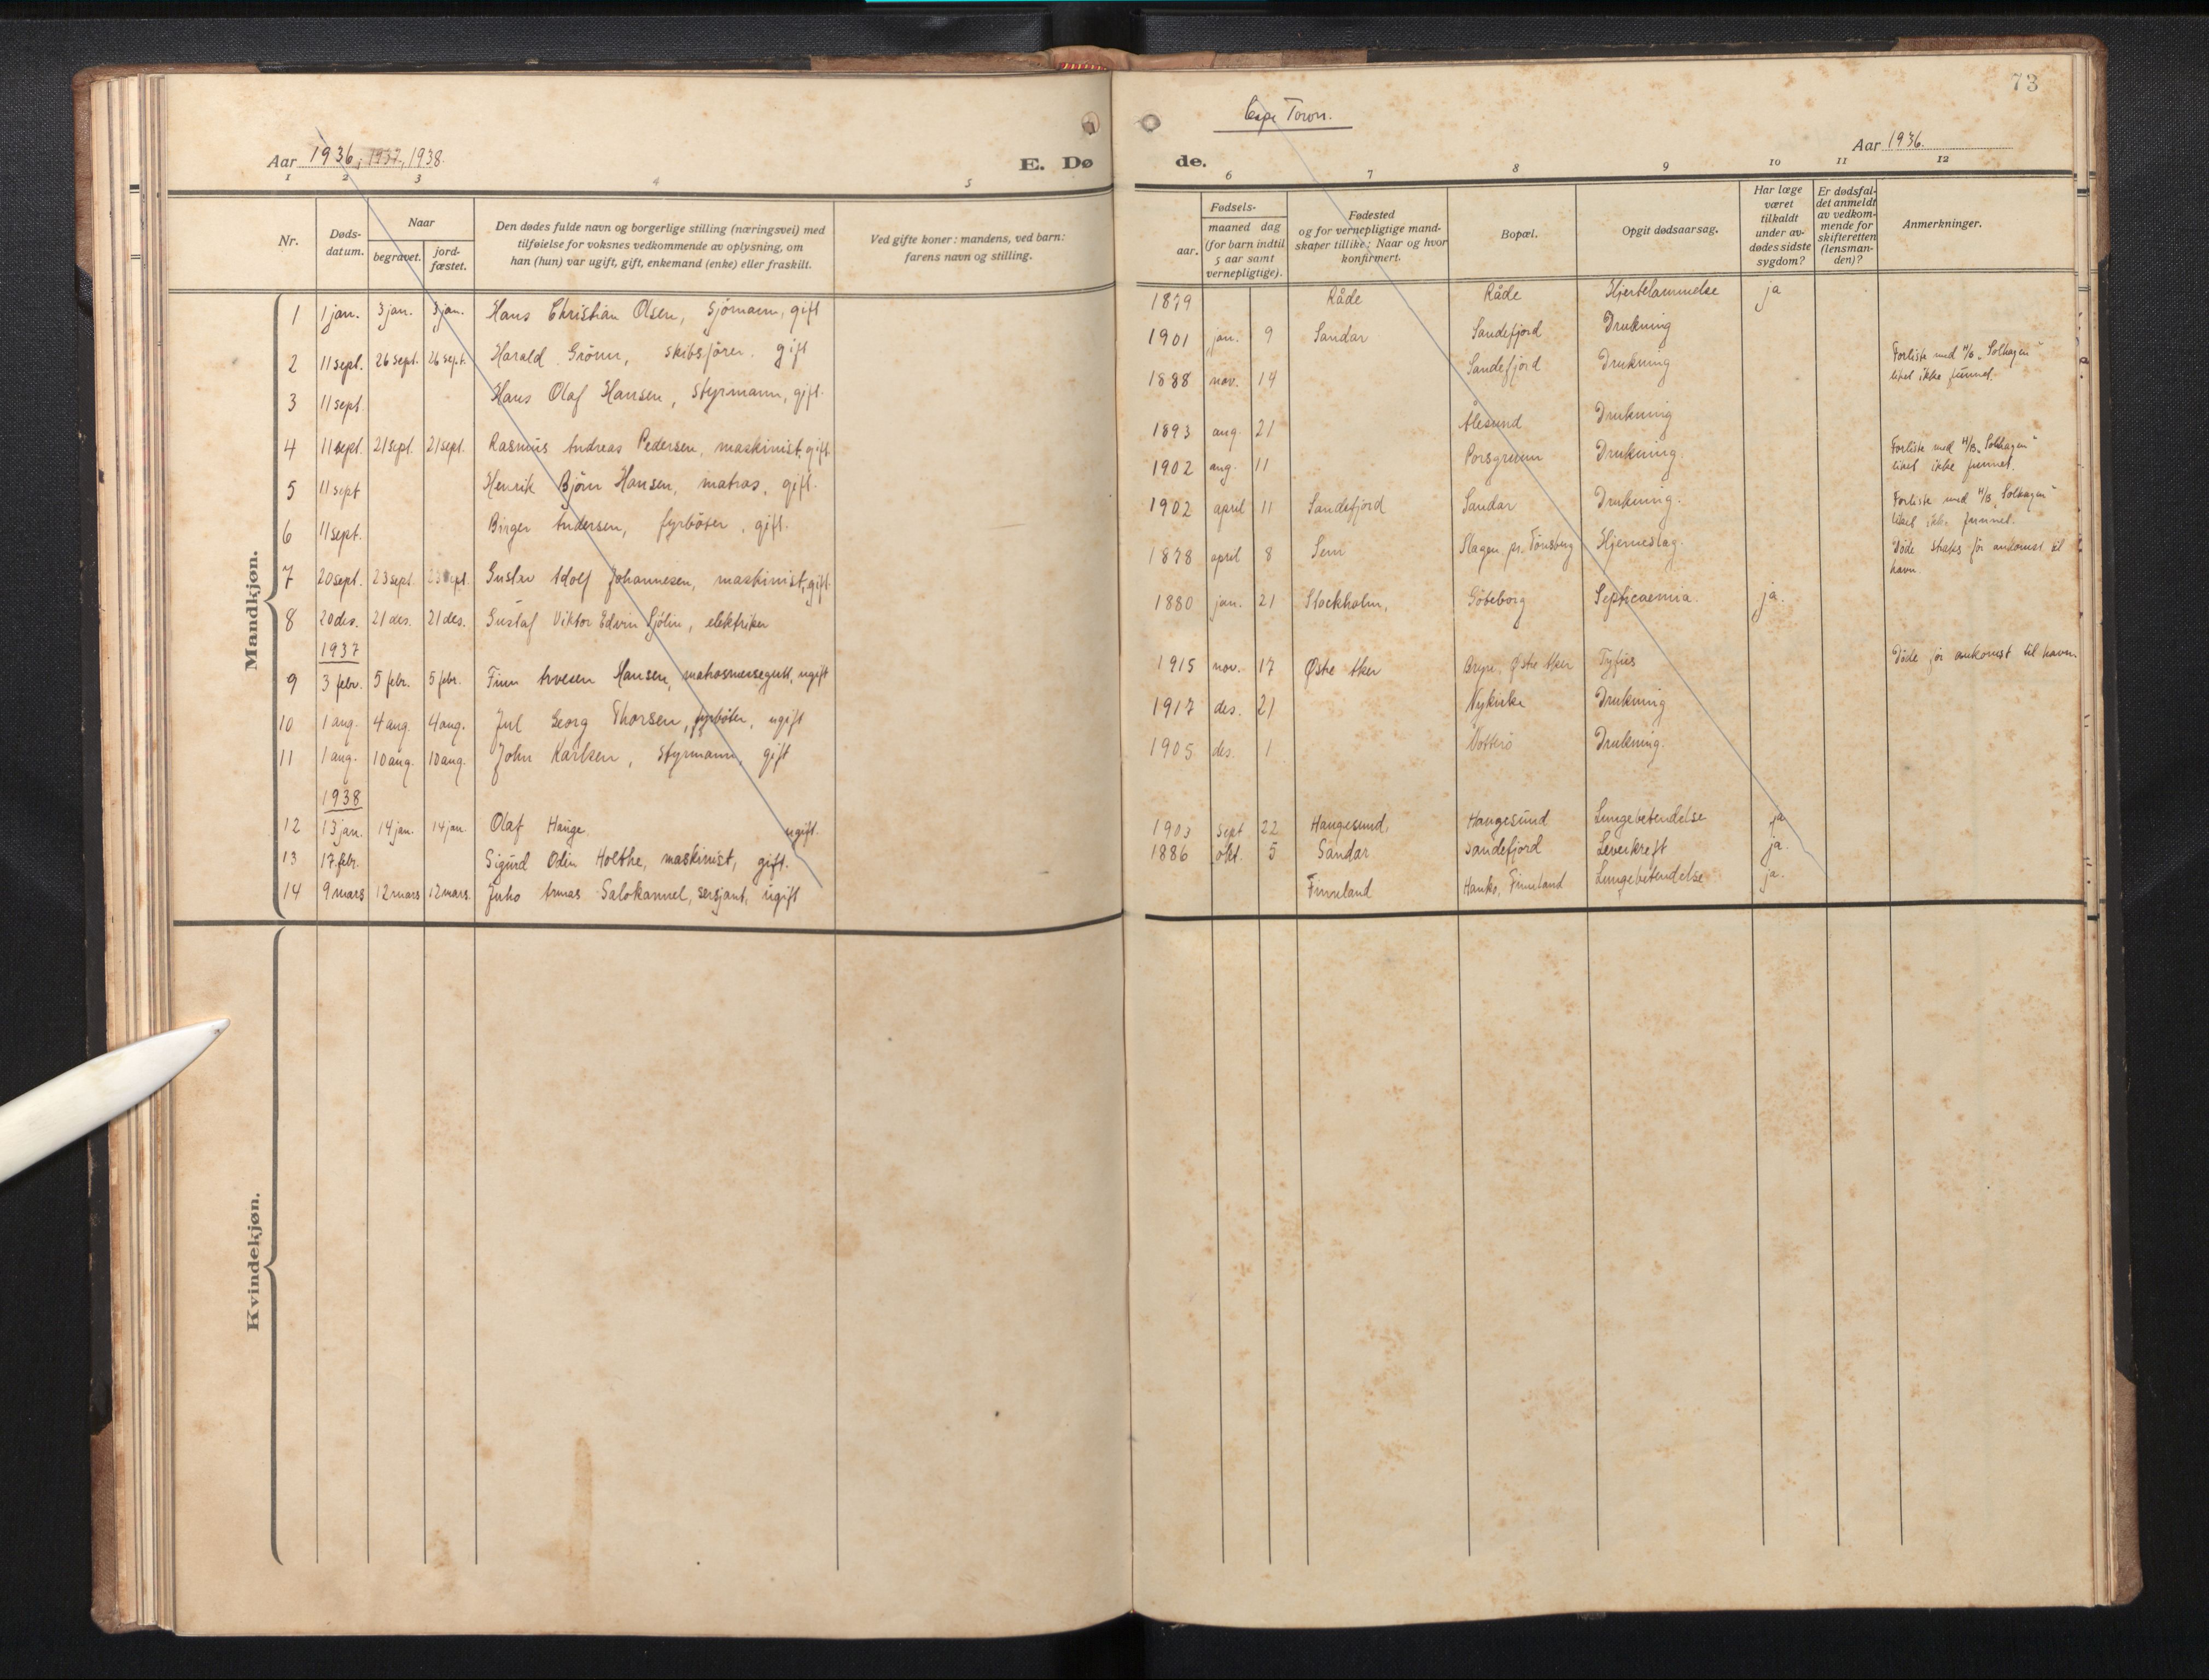 73
Cape Town.
Aar 1936, 1937, 1938.
E. Dø
de.
Aar 1936.
1 2 3 4 5
6 7 8 9 10 11 12
Nr.
Døds-
datum.
Naar
begravet.
jord-
fæstet.
Den dødes fulde navn og borgerlige stilling (næringsvei) med
tilføielse for voksnes vedkommende av oplysning, om
han (hun) var ugift, gift, enkemand (enke) eller fraskilt.
Ved gifte koner: mandens, ved barn:
farens navn og stilling.
Fødsels-
aar.
maaned dag
(for barn indtil
5 aar samt
vernepligtige).
Fødested
og for vernepligtige mand-
skaper tillike: Naar og hvor
konfirmert.
Bopæl.
Opgit dødsaarsag.
Har læge
været
tilkaldt
under av-
dødes sidste
sygdom?
Er dødsfal-
det anmeldt
av vedkom-
mende for
skifteretten
(lensman-
den)?
Anmerkninger.
Mandkjøn.
1 1 jan. 3 jan. 3 jan. Hans Christian Olsen, sjømann, gift 1879 Råde Råde Hjertelammelse ja
2 11 sept. 26 sept. 26 sept. Harald Grönn, skibsfører. gift 1901 jan. 9 Sandar Sandefjord Drukning
3 11 sept. Hans Olaf Hansen, styrmann, gift. 1888 nov. 14 Sandefjord Drukning Forliste med M/B „Solhagen"
liket ikke funnet.
4 11 sept. 21 sept. 21 sept. Rasmus Andreas Pedersen, maskinist, gift. 1893 aug. 21 Ålesund Drukning
5 11 sept Henrik Bjørn Hansen, matros, gift. 1902 aug. 11 Porsgrunn Drukning. Forliste med M/B „Solhagen"
liket ikke funnet.
6 11 sept. Birger Andersen, fyrbøter, gift. 1902 april 11 Sandefjord Sandar Drukning. Forliste med M/B „Solhagen"
liket ikke funnet.
7 20 sept. 23 sept. 23 sept. Gustav Adolf Johannesen, maskinist, gift. 1878 april 8 Sem Slagen pr. Tønsberg Hjerneslag. Døde straks før ankomst til
havn
8 20 des. 21 des. 21 des. Gustaf Viktor Edvin Sjölin, elektriker 1880 jan. 21 Stockholm, Göteborg Septicaemia. ja.
1937
9 3 febr. 5 febr. 5 febr. Finn Arvesen Hansen, matrosmessegutt, ugift 1915 nov. 17 Østre Aker Bryn, Østre Aker Tyfus Døde før ankomst til havn.
10 1 aug. 4 aug. 4 aug. Jul Georg Thorsen, fyrbøter, ugift 1917 des. 21 Nykirke Drukning
11 1 aug. 10 aug. 10 aug. John Karlsen, styrmann, gift 1905 des. 1 Nøtterø Drukning.
1938
12 13 jan. 14 jan. 14 jan Olaf Hauge ugift. 1903 sept 22 Haugesund Haugesund Lungebetendelse ja
13 17. febr. Sigurd Odin Holthe, maskinist, gift. 1886 okt. 5 Sandar Sandefjord Leverkreft ja.
14 9 mars 12 mars 12 mars. Juho Armas Salokannel, sersjant, ugift Finnland Hanko, Finnland Lungebetendelse ja.
Kvindekjøn.